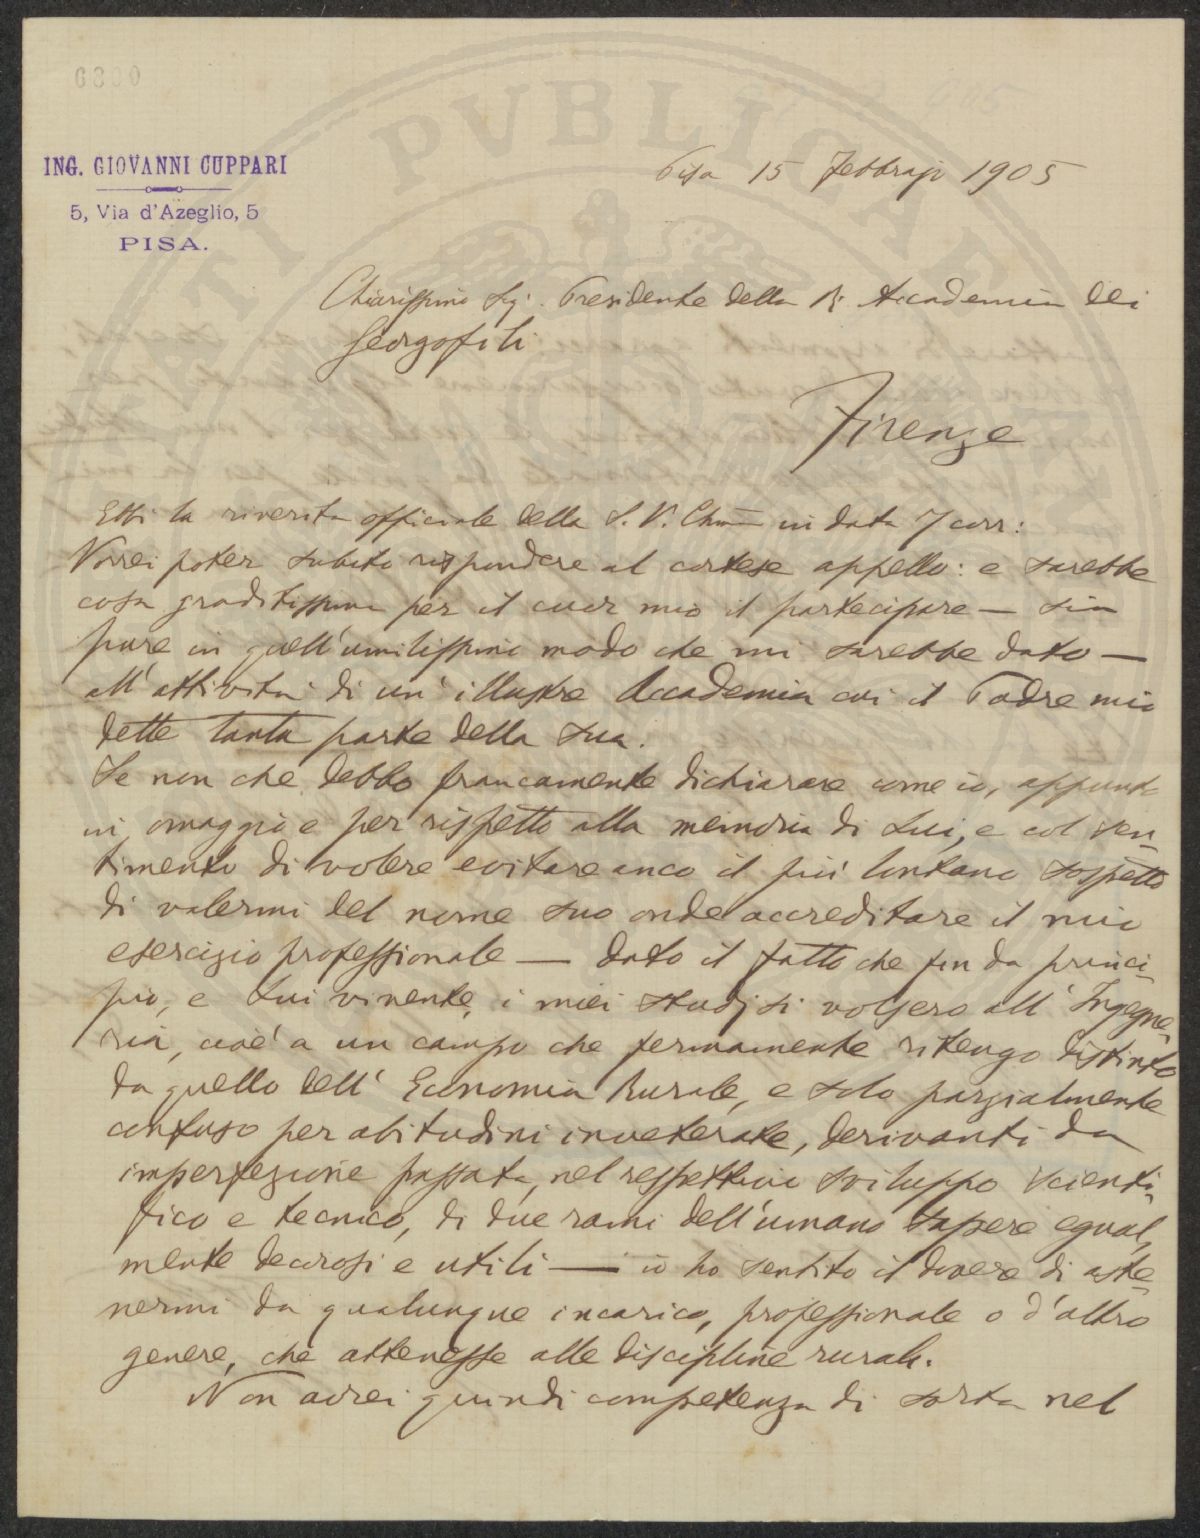 6800
ING. GIOVANNI CUPPARI
5, Via d'Azeglio, 5
PISA.
Pisa 15 Febbrajo 1905
Chiarissimo Sig. Presidente della R. Accademia dei
Georgofili
Firenze
Ebbi la riverita officiale della S. V. Chma in data 7 corr:
Vorrei poter subito rispondere al cortese appello: e sarebbe
cosa graditissima per il cuor mio il partecipare — sia
pure in quell'umilissimo modo che mi sarebbe dato —
all'attività di un'illustre Accademia cui il Padre mio
dette tanta parte della sua.
Se non che debbo francamente dichiarare come io, appunto
in omaggio e per rispetto alla memoria di Lui, e col sen-
timento di volere evitare anco il più lontano sospetto
di valermi del nome suo onde accreditare il mio
esercizio professionale — dato il fatto che fin da princi-
pio, e Lui vivente, i miei studj si volsero all'Ingegne-
ria, cioè a un campo che fermamente ritengo distinto
da quello dell'Economia Rurale, e solo parzialmente
confuso per abitudini inveterate, derivanti da
imperfezione passata, nel respettivo sviluppo scienti-
fico e tecnico, di due rami dell'umano sapere egual-
mente decorosi e utili — io ho sentito il dovere di aste-
nermi da qualunque incarico, professionale o d'altro
genere, che attenesse alle discipline rurali.
Non avrei quindi competenza di sorta nel
PVBLICAE